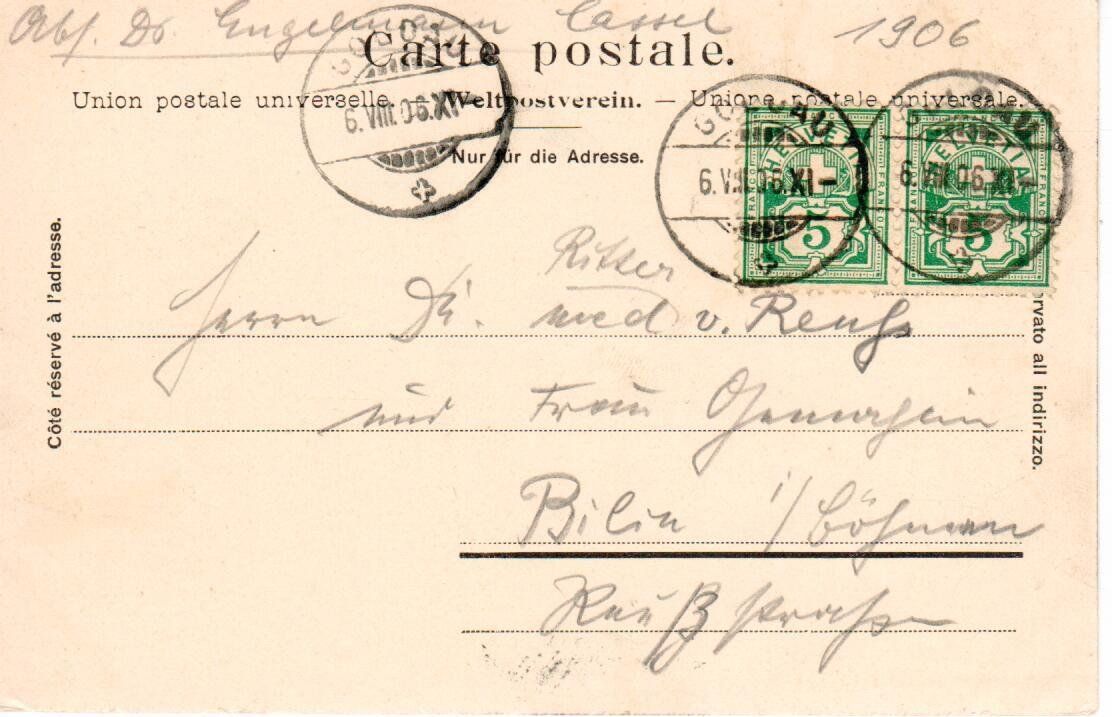 Abs. Dr. Engelmann Cassel 1906
Carte postale.
Union postale universelle. — Weltpostverein. — Unione postale universale.
Nur für die Adresse.
Côté réservé à l'adresse.
GOLDAU
6.VIII.06.XI—
GOLDAU
6.VIII.06.XI—
GOLDAU
6.VIII.06.XI—
HELVETIA
FRANCO FRANCO
5
HELVETIA
FRANCO FRANCO
5
rvato all indirizzo.
Ritter
Herrn Dr. med v. Reuß
und Frau Gemahlin
Bilin i/Böhmen
Reußstraße